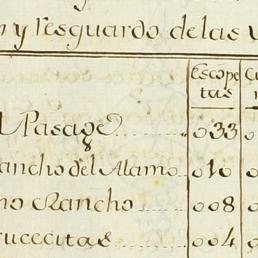 y resguardo de las
Escope
tas
Pasage 033
ancho del Alamo 010
mo Rancho 008
rucecitas 004